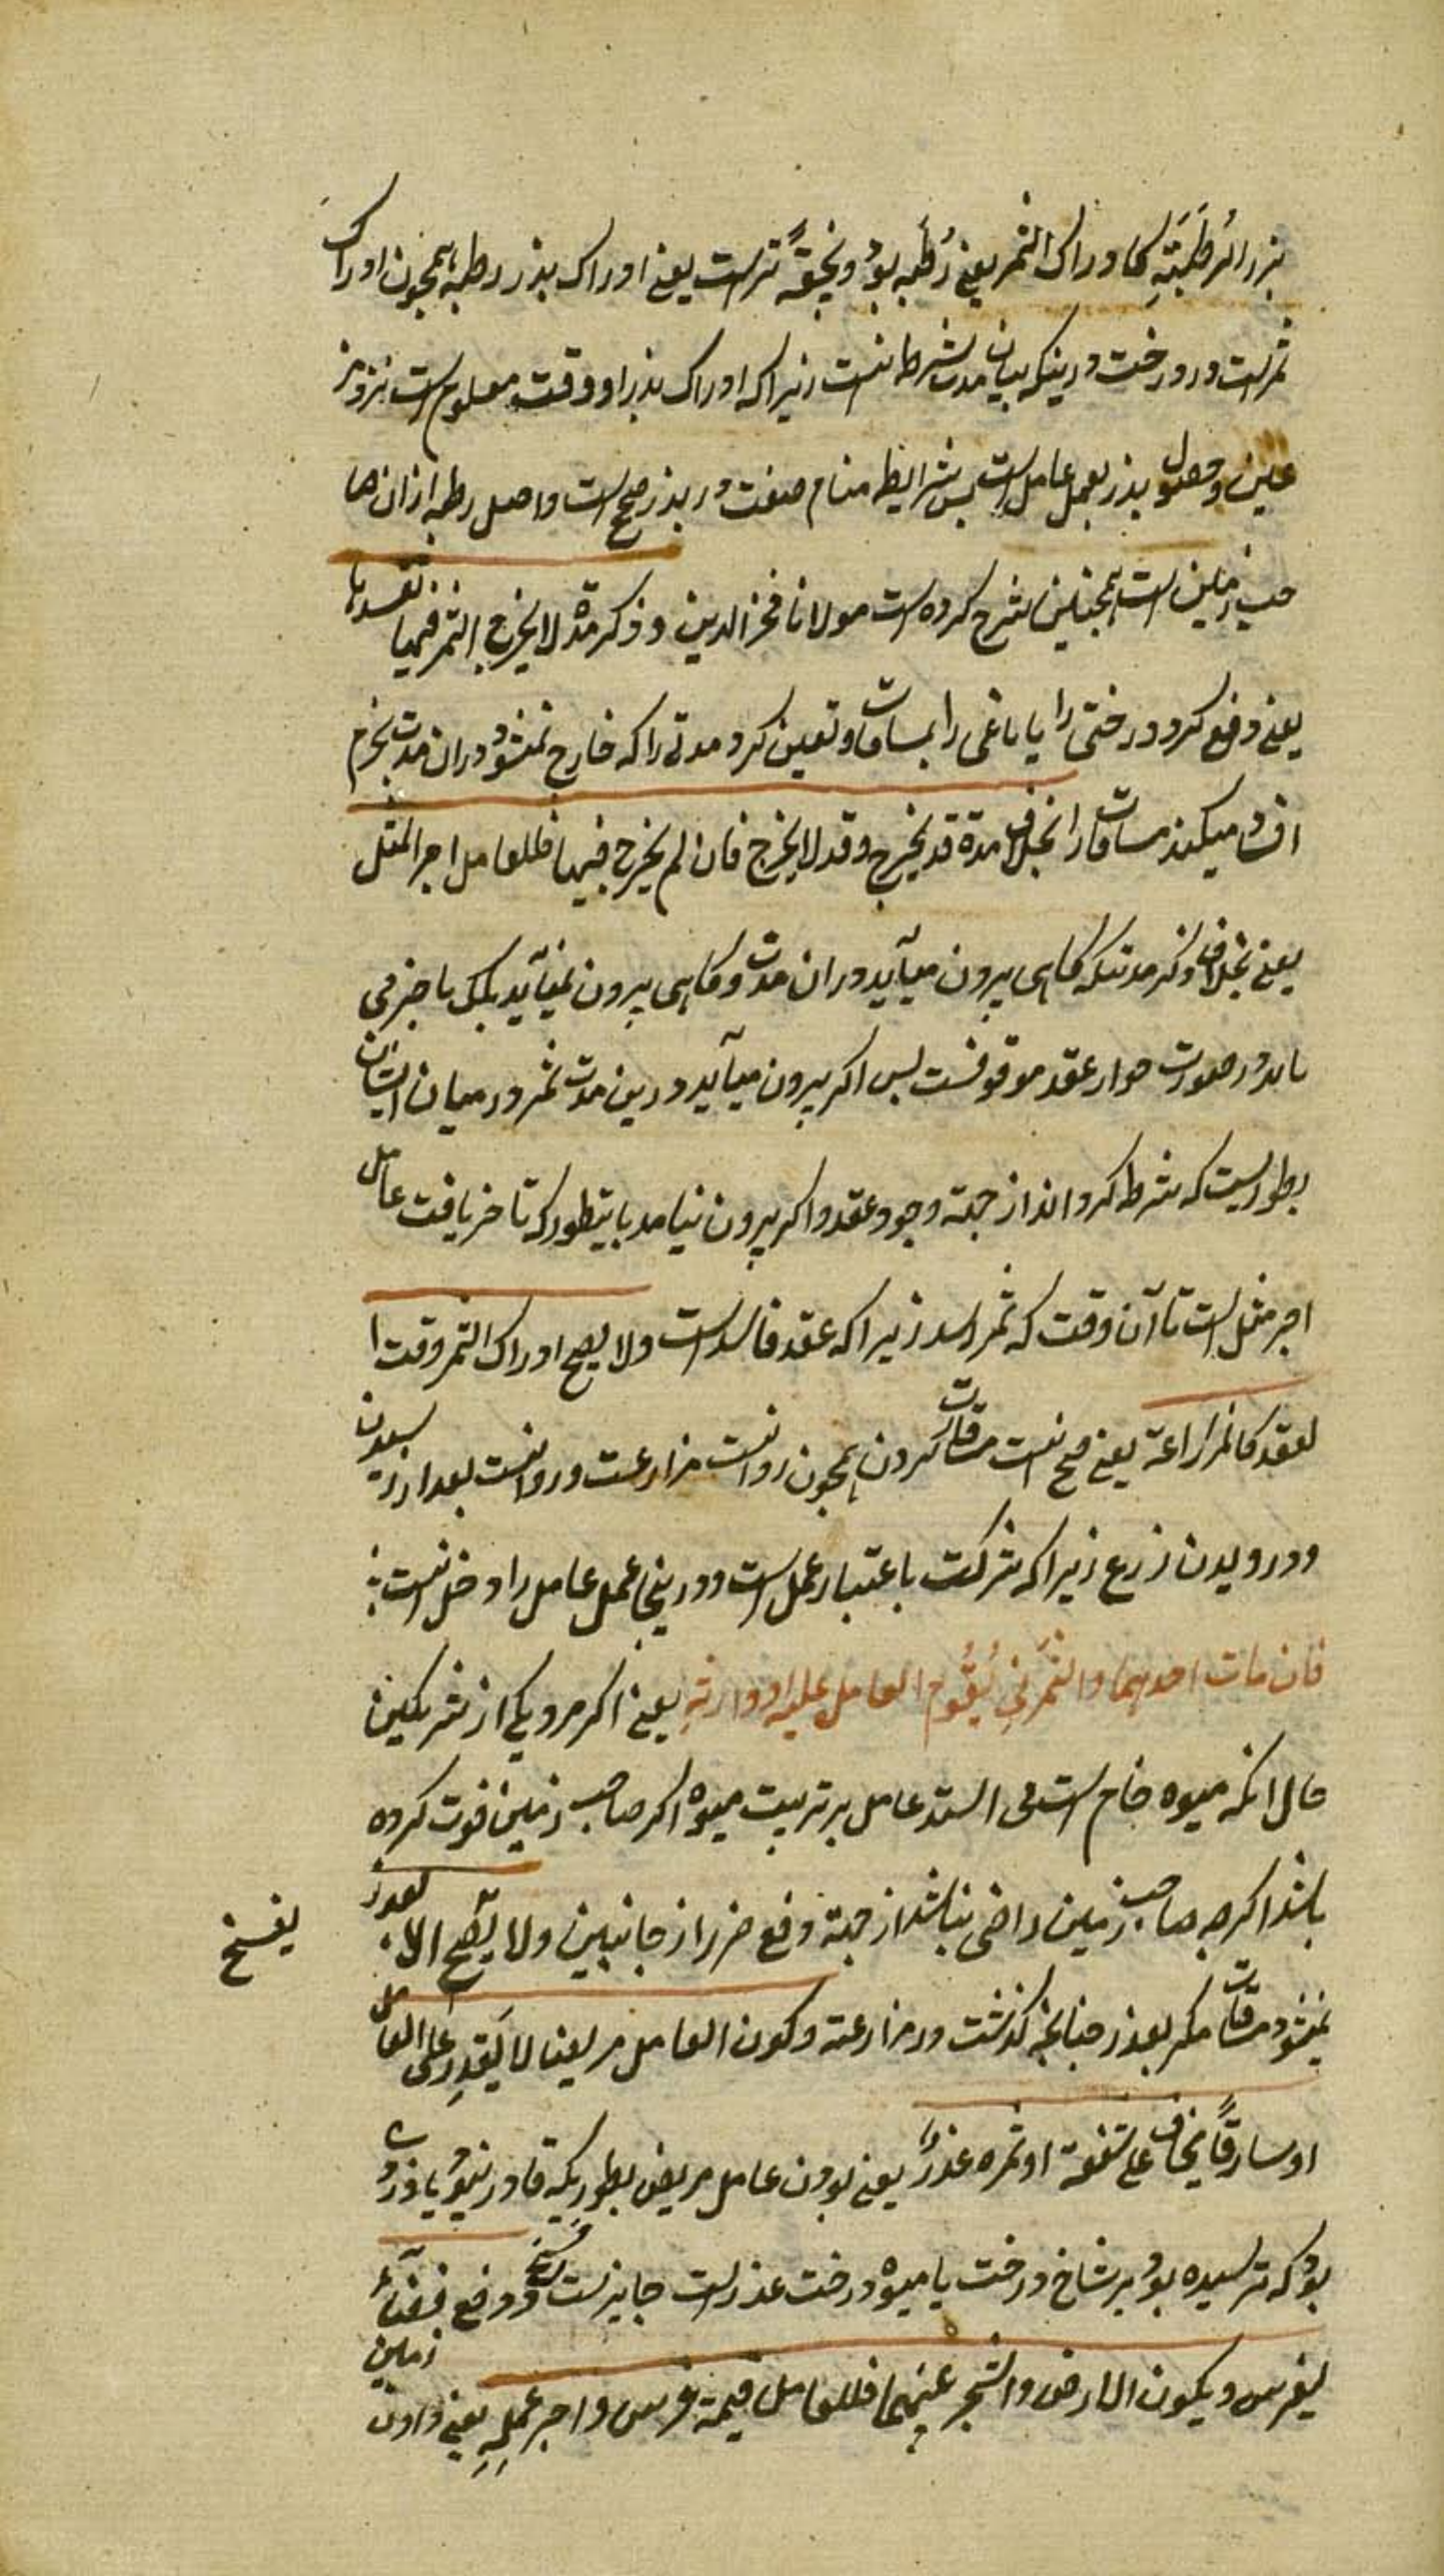 بزر الرَطبَتهِ کا دراک الثمر یعنی رُطَبه بود و نحیقهً تر است یعنی ادراک بذر رطبه همچون ادراک
ثمر است در درخت درینکه بیان مدت شرط نیست زیراکه ادراک بذر او وقت معلوم است نزد
و حصول بذر بعمل عامل است پس شرایط صفت در بذر صحیح است و اصل رطبه از ان
زمین است همچنین شرح کرده است مولانا فخر الدین و ذکر مدّة لا یخرج الثمر فیها تفسدها
یعنی دفع کرد درختی را یا باغی را بمساقات و تعین کرد مدتی را که خارج نمیشود دران مدت
میکند مساقات را بخلاف مدة قد یخرج و قد لا یخرج فان لم یخرج فیها فللعامل اجر المثل
یعنی بخلاف ذکر مدتیکه کاهی بیرون میآید دران مدت و کاهی بیرون نمیآید
در صورت عقد موقوفست پس اکر بیرون میآید درین مدت ثمر درمیان ایشان
بطوریست که شرط کرده اند از جهة وجود عقد و اکر بیرون نیامد باینطور که تاخر یافت عامل
اجر مثل است تا آن وقت که ثمر رسد زیراکه عقد فاسد است ولا یصح ادراک الثمر وقت ا
لعقد کالمزارعة یعنی صحیح نیست مساقات کردن همچون روا نیست مزارعت و روا نیست بعد از رسیدن
و درویدن زرع زیراکه شرکت باعتبار عمل است و درینجا عمل عامل را دخل نیست
فان مات احدهما والثمر نی یُقوم العامل علیه او وارثهِ یعنی اکر مرد یکی از شریکین
حال انکه میوه خام است می استد عامل بر تربیت میوه اکر صاحب زمین فوت کرده
باشد اکرچه صاحب زمین راضی نباشد از جهة دفع ضرر از جانبین ولا یصح الا بعذر
یفسخ
نمیشود مساقات مکر بعذر چنانچه کذشت در مزارعة و کون العامل مریضا لا یَقدِر علی العمل
او سارقاً یخاف علی سعفه او ثمره عذرٌ یعنی بودن عامل مریض بطوریکه قادر نبود یا دزدی
بود که ترسیده بود بر شاخ درخت یا میوه درخت عذر است جایز است فسخ و دفع فضآءً
لیغرس و یکون الارض والشجر بینهما فللعامل قیمة غرس و اجر عمله یعنی دادن زمین